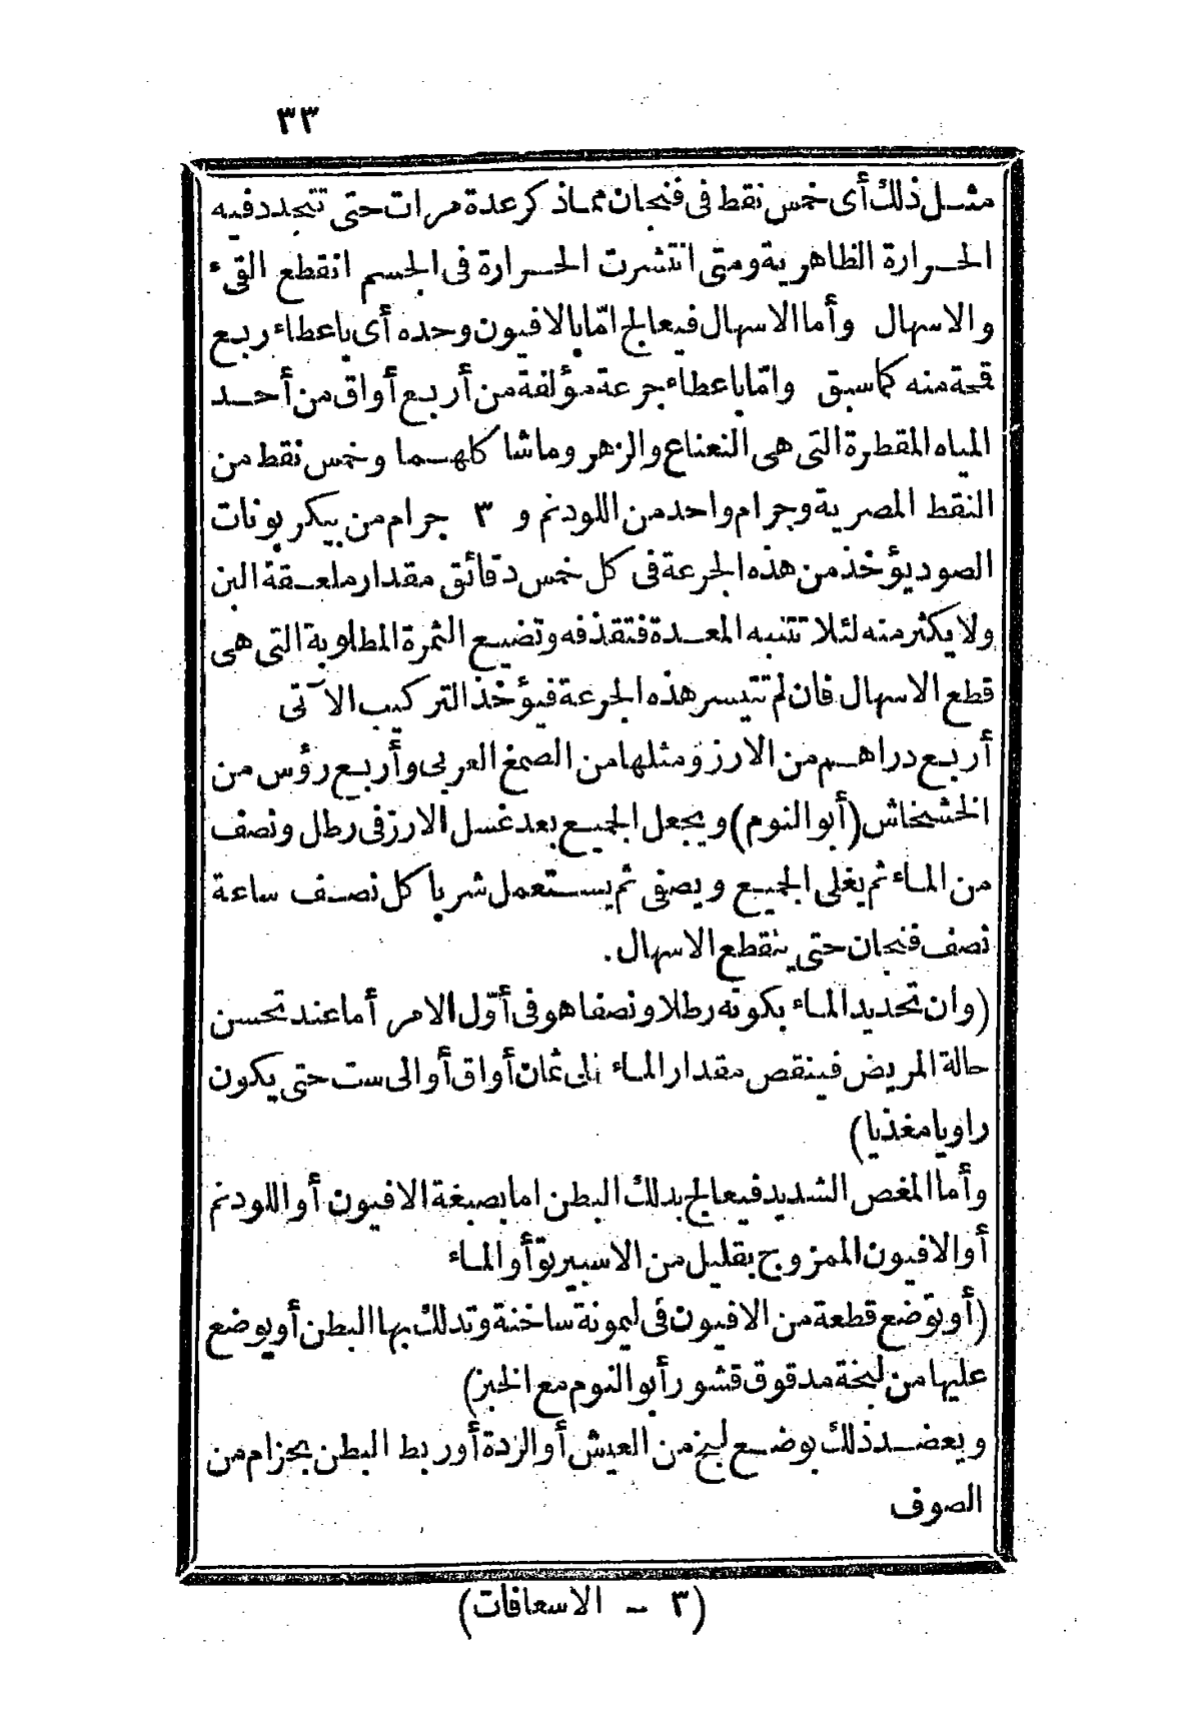 ٣٣
مثل ذلك أى خمس نقط فى فنجان مماذكر عدة مرات حتى تتجدد فيه
الحرارة الظاهرية ومتى انتشرت الحرارة فى الجسم انقطع القىء
والاسهال وأما الاسهال فيعالج امّا بالافيون وحده أى باعطاء ربع
قمحة منه كماسبق وامّا باعطاء جرعة مؤلفة من أربع أواق من أحد
المياه المقطرة التى هى النعناع والزهر وماشا كلهما وخمس نقط من
النقط المصرية وجرام واحد من اللودنم و ٣ جرام من بيكربونات
الصود يؤخذ من هذه الجرعة فى كل خمس دقائق مقدار ملعقة البن
ولا يكثر منه لئلا تتنبه المعدة فتقذفه وتضيع الثمرة المطلوبة التى هى
قطع الاسهال فان لم تتيسر هذه الجرعة فيؤخذ التركيب الآتى
أربع دراهم من الارز ومثلها من الصمغ العربى وأربع رؤس من
الخشخاش (أبو النوم) ويجعل الجميع بعد غسل الارز فى رطل ونصف
من الماء ثم يغلى الجميع ويصفى ثم يستعمل شربا كل نصف ساعة
نصف فنجان حتى ينقطع الاسهال .
(وان تحديد الماء بكونه رطلا ونصفا هو فى أوّل الامر أما عند تحسن
حالة المريض فينقص مقدار الماء الى ثمان أواق أو الى ست حتى يكون
راويا مغذيا)
وأما المغص الشديد فيعالج بدلك البطن اما بصبغة الافيون أو اللودنم
أو الافيون الممزوج بقليل من الاسبيرتو أو الماء
(أو توضع قطعة من الافيون فى ليمونة ساخنة وتدلك بها البطن أو يوضع
عليها من لبخة مدقوق قشور أبو النوم مع الخبز)
ويعضد ذلك بوضع لبخ من العيش أو الردة أو ربط البطن بحزام من
الصوف
(٣ - الاسعافات)